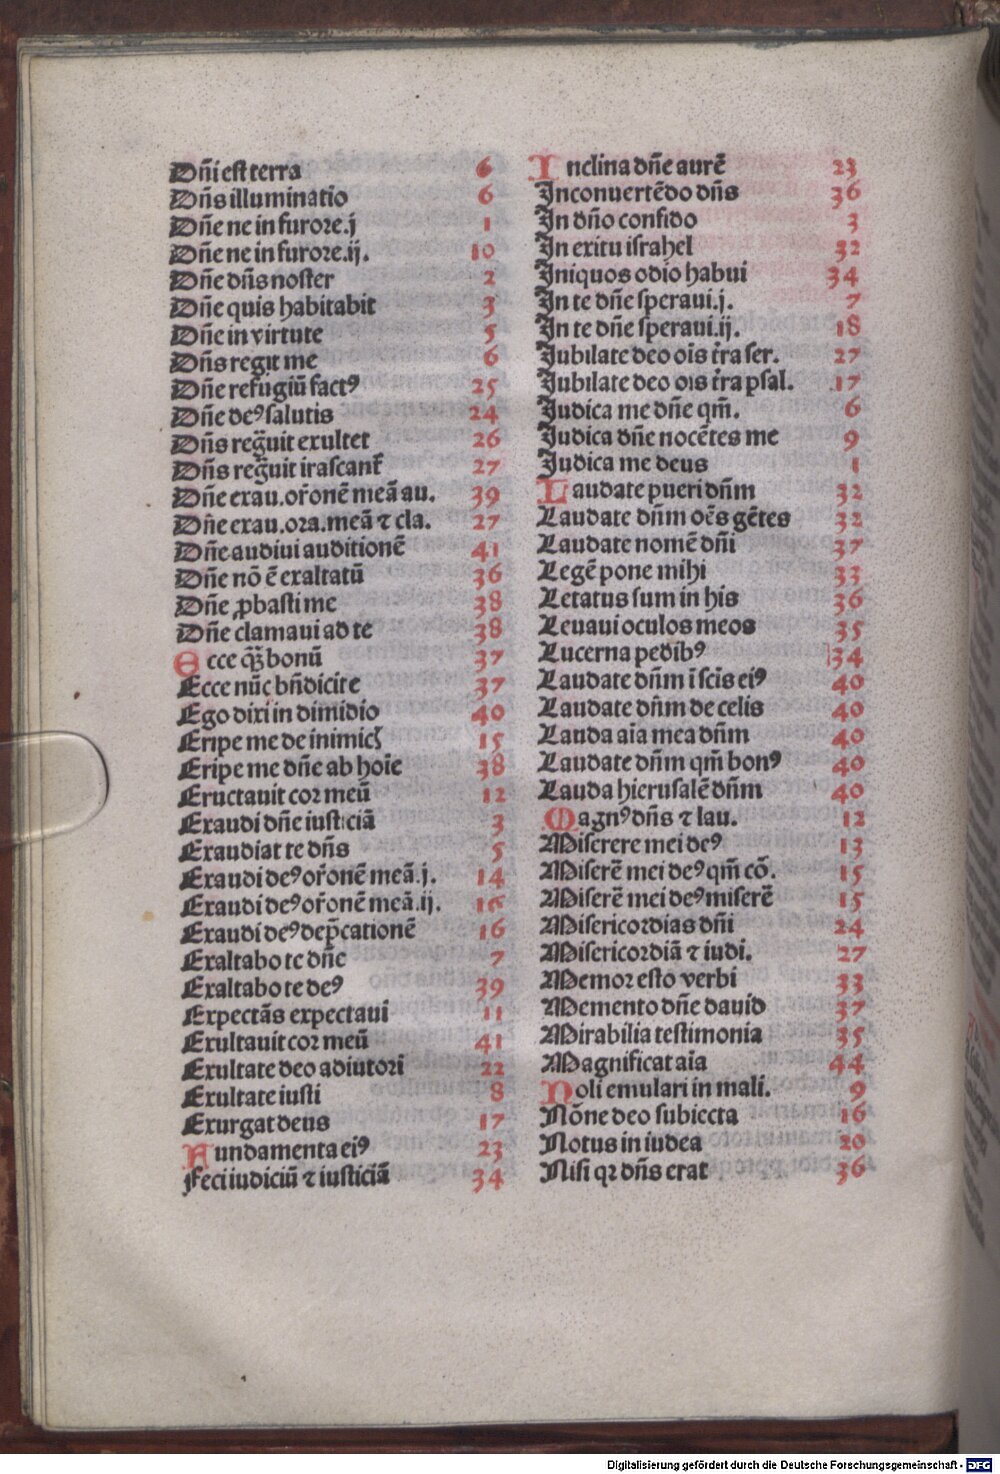 Dn̄i est terra 6
Dn̄s illuminatio 6
Dn̄e ne in furore.j 1
Dn̄e ne in furore.ij. 10
Dn̄e dn̄s noster 2
Dn̄e quis habitabit 3
Dn̄e in virtute 5
Dn̄s regit me 6
Dn̄e refugiū factꝰ 25
Dn̄e deꝰ salutis 24
Dn̄s reḡuit exultet 26
Dn̄s reḡuit irascant᷑ 27
Dn̄e exau.or̄onē meā au. 39
Dn̄e exau.ora.meā ⁊ cla. 27
Dn̄e audiui auditionē 41
Dn̄e nō ē exaltatū 36
Dn̄e ꝓbasti me 38
Dn̄e clamaui ad te 38
Ecce qꝫ̄ bonū 37
Ecce nūc bn̄dicite 37
Ego dixi in dimidio 40
Eripe me de inimicꝭ 15
Eripe me dn̄e ab hoīe 38
Eructauit cor meū 12
Exaudi dn̄e iusticiā 3
Exaudiat te dn̄s 5
Exaudi deꝰ or̄onē meā.j. 14
Exaudi deꝰ or̄onē meā.ij.
Exaudi deꝰ dep̄cationē 16
Exaltabo te dn̄e 7
Exaltabo te deꝰ 39
Expectās expectaui 11
Exultauit cor meū 41
Exultate deo adiutori 22
Exultate iusti 8
Exurgat deus 17
Fundamenta eiꝰ 23
Feci iudiciū ⁊ iusticiā 34
Inclina dn̄e aurē 23
In conuertēdo dn̄s 36
In dn̄o confido 3
In exitu israhel 32
Iniquos odio habui 34
In te dn̄e speraui.j. 7
In te dn̄e speraui.ij. 18
Iubilate deo oīs t̄ra ser. 27
Iubilate deo oīs t̄ra psal. 17
Iudica me dn̄e qm̄. 6
Iudica dn̄e nocētes me 9
Iudica me deus 1
Laudate pueri dn̄m 32
Laudate dn̄m oēs gētes 32
Laudate nomē dn̄i 37
Legē pone mihi 33
Letatus sum in his 36
Leuaui oculos meos 35
Lucerna pedibꝰ 34
Laudate dn̄m ī scīs eiꝰ 40
Laudate dn̄m de celis 40
Lauda aīa mea dn̄m 40
Laudate dn̄m qm̄ bonꝰ 40
Lauda hierusalē dn̄m 40
Magnꝰ dn̄s ⁊ lau. 12
Miserere mei deꝰ 13
Miserē mei deꝰ qm̄ cō. 15
Miserē mei deꝰ miserē 15
Misericordias dn̄i 24
Misericordiā ⁊ iudi. 27
Memor esto verbi 33
Memento dn̄e dauid 37
Mirabilia testimonia 35
Magnificat aīa 44
Noli emulari in mali. 9
Nōne deo subiecta 16
Notus in iudea 20
Nisi qꝛ dn̄s erat 36
Digitalisierung gefördert durch die Deutsche Forschungsgemeinschaft - DFG